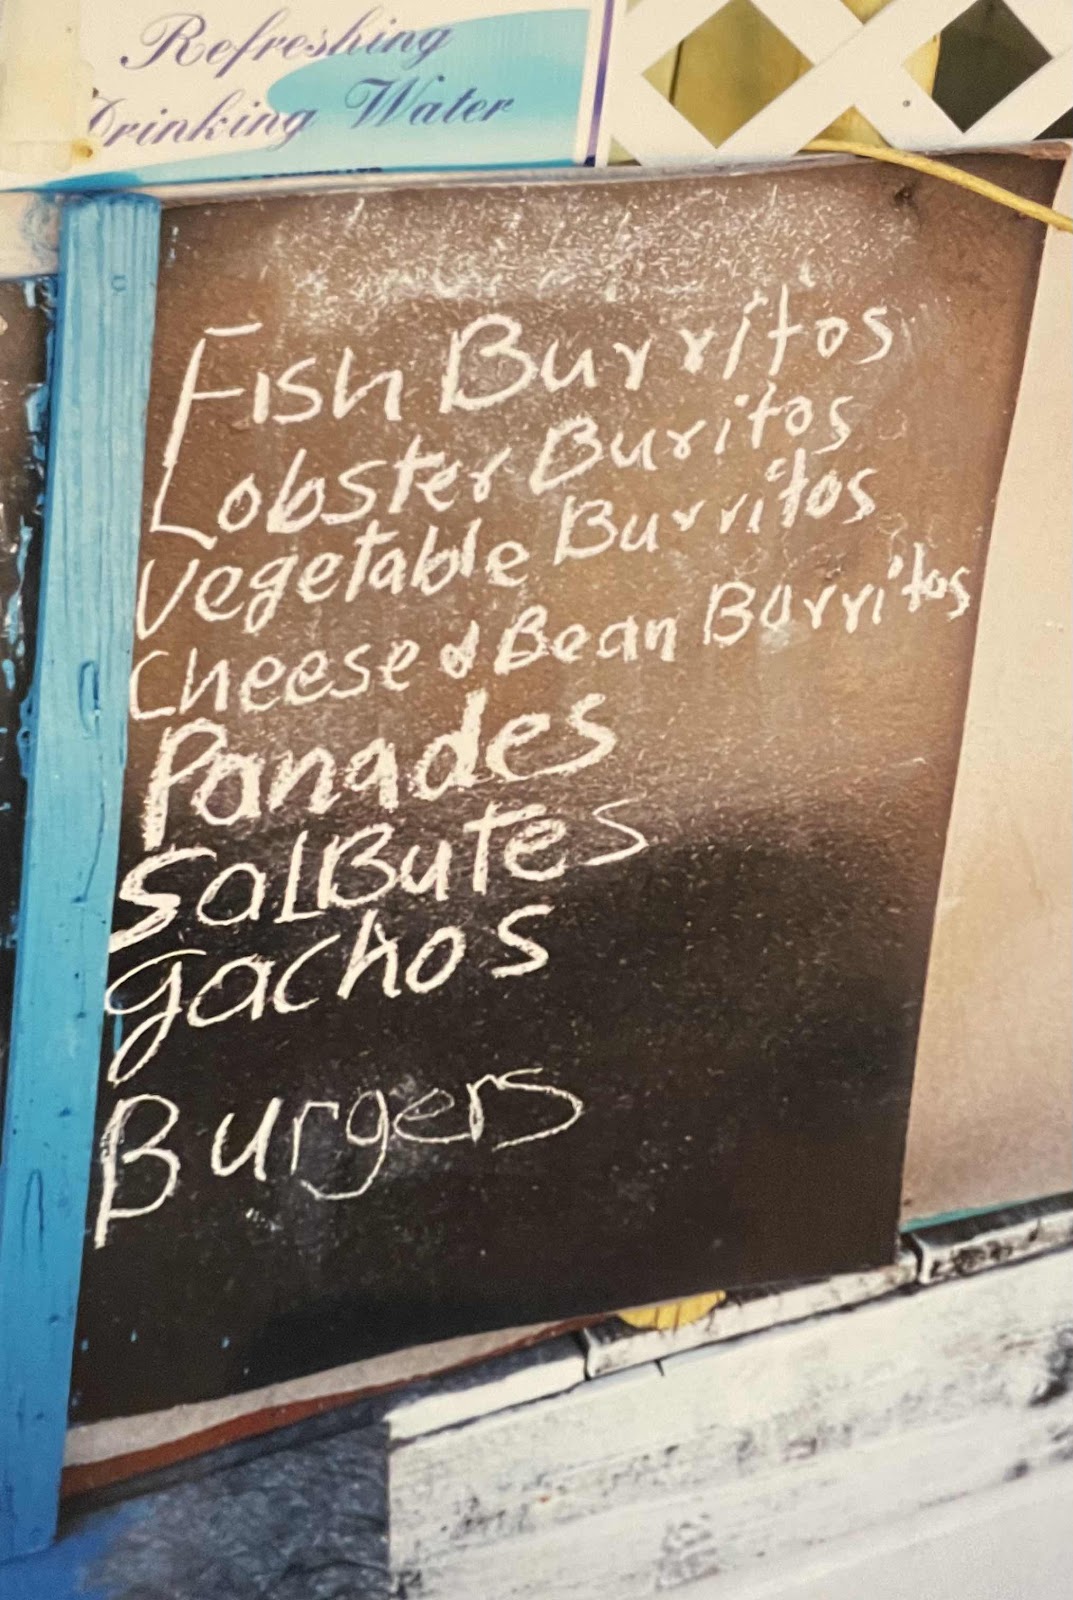 Refreshing
Drinking Water
Fish Burritos
Lobster Buritos
Vegetable Burritos
Cheese & Bean Burritos
Panades
SalButes
gachos
Burgers